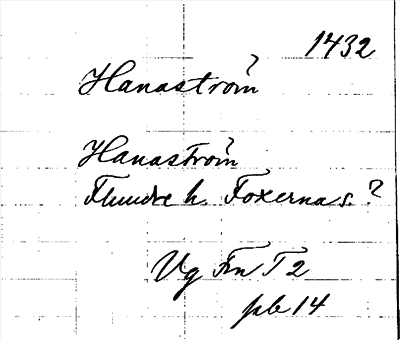 1432
Hanaström
Hanaström
Flundre h. Foxerna s. ?
Vg Fn T 2
pb 14